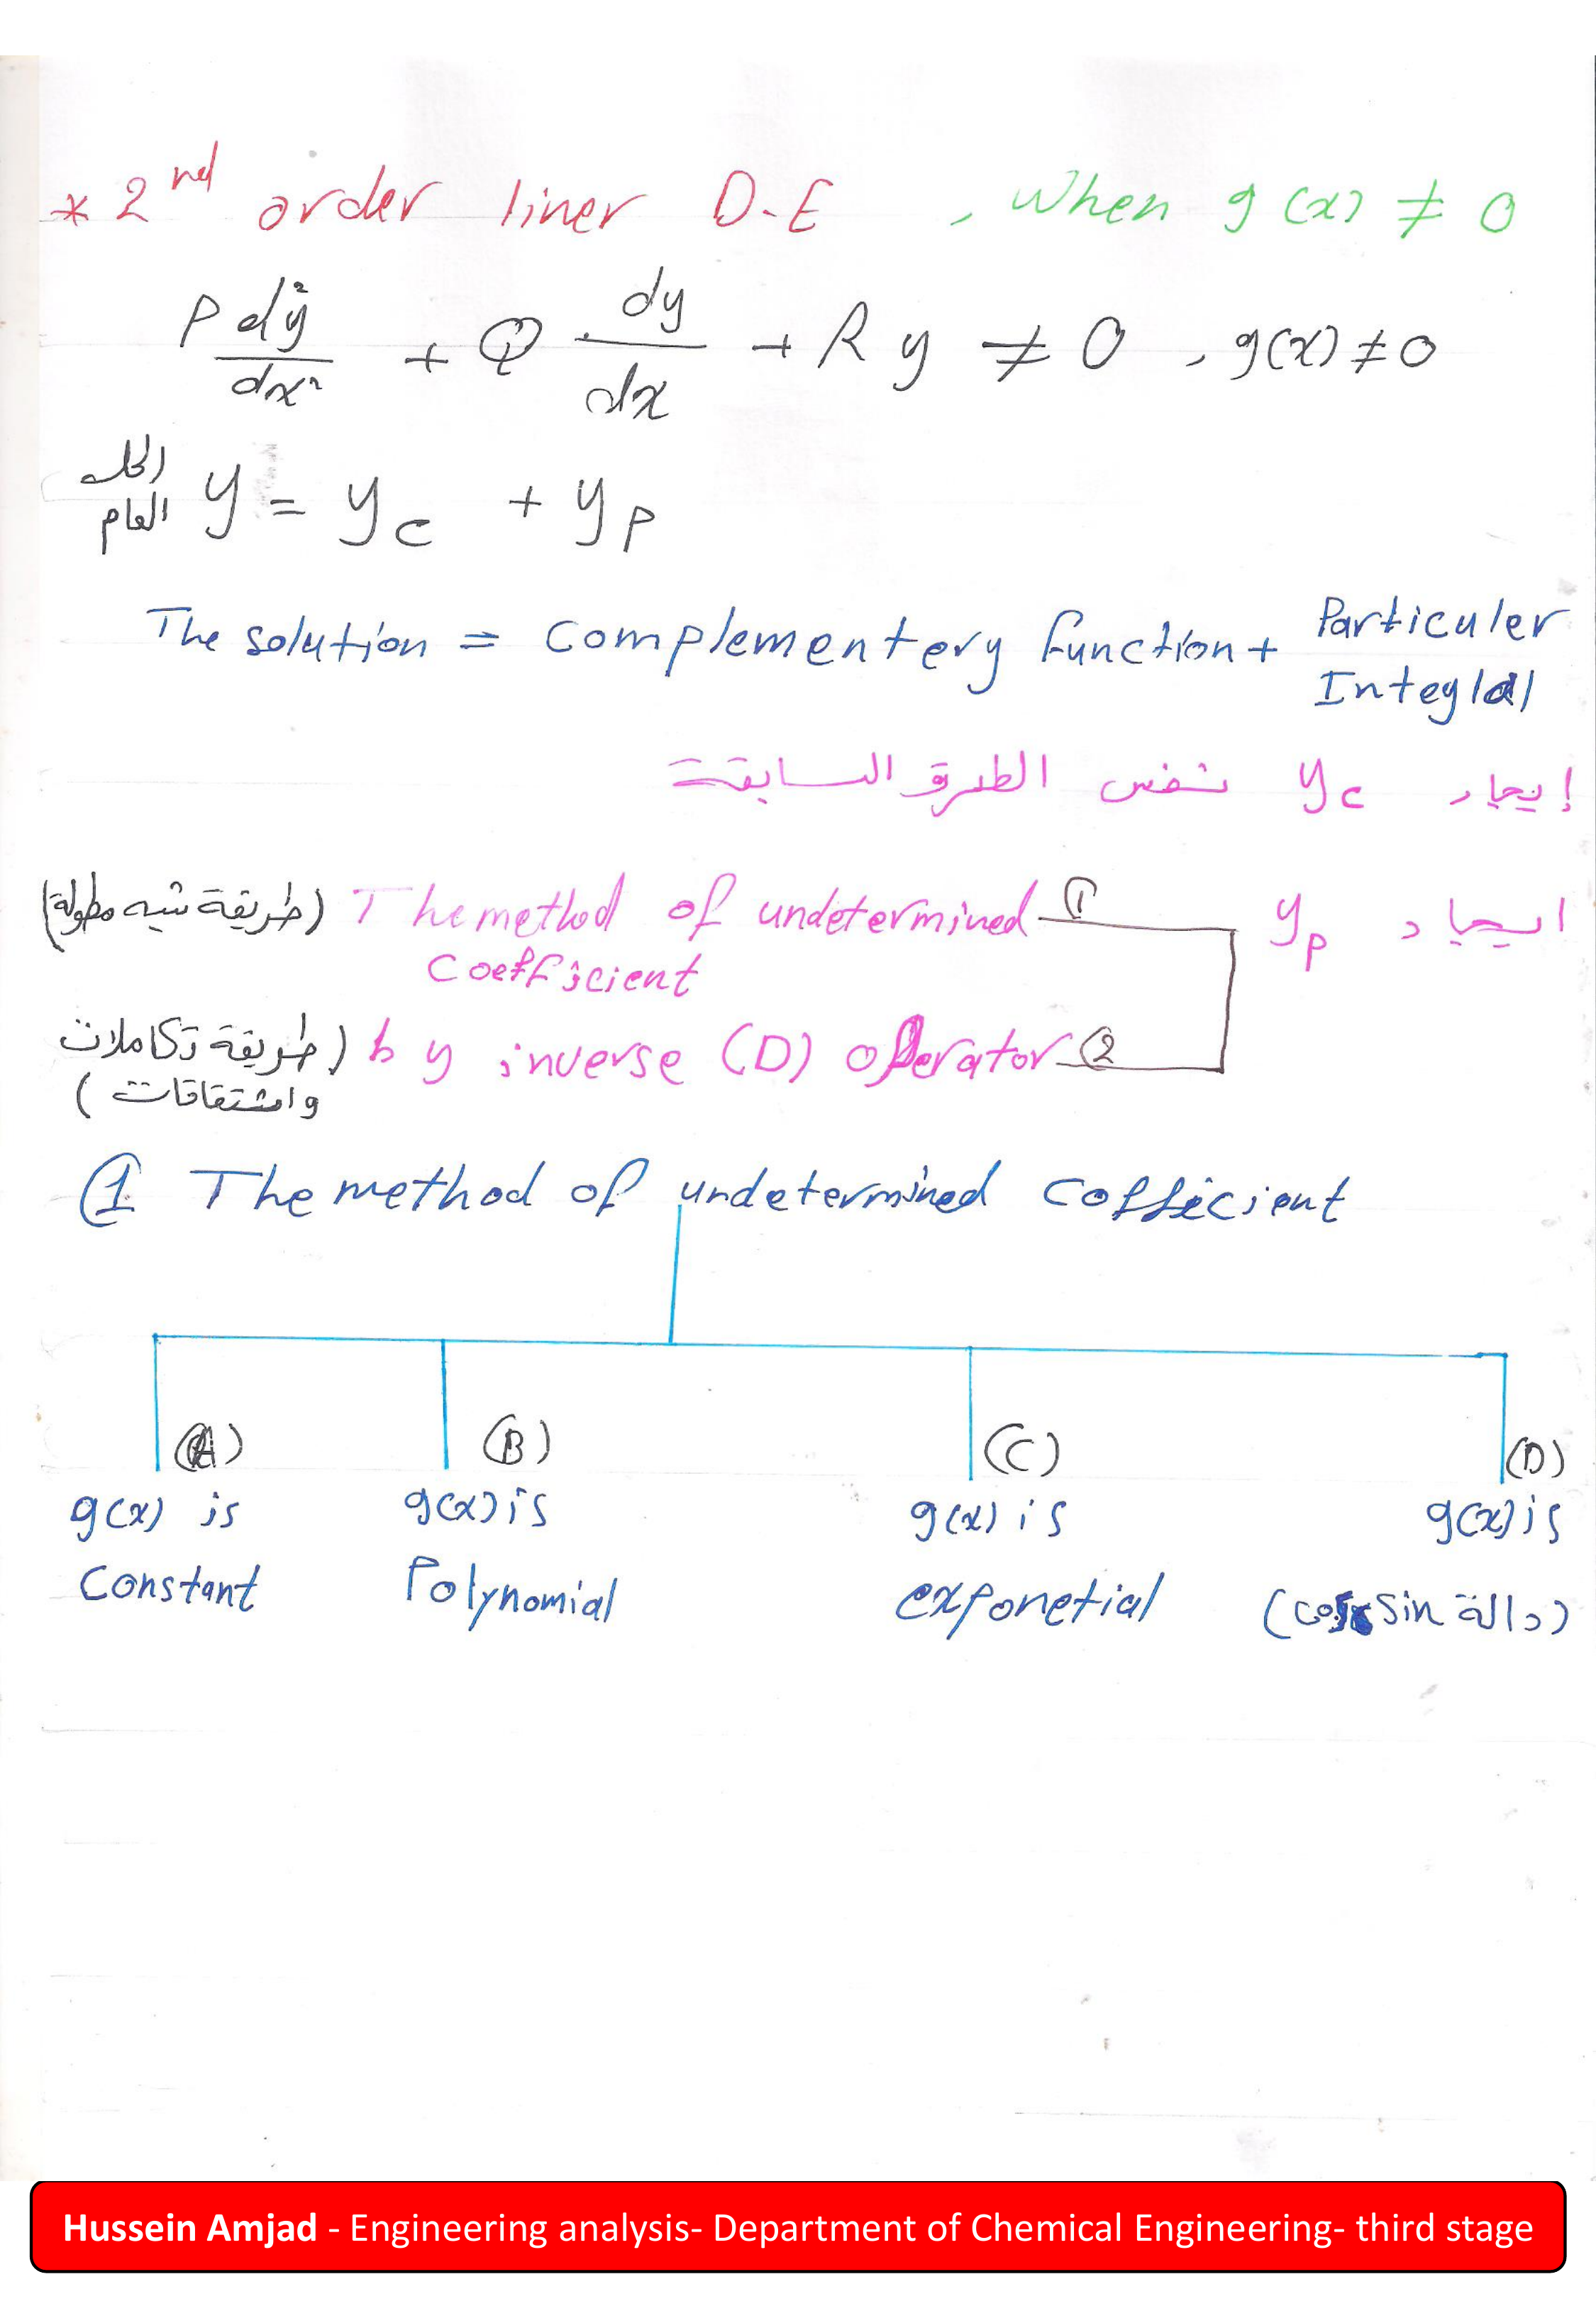 * 2nd order liner D-E , When g(x) ≠ 0
P d²y/dx² + Q dy/dx + R y ≠ 0 , g(x) ≠ 0
الحل العام y = yc + yp
The solution = Complementery function + Particuler Integlal
إيجاد yc نفس الطرق السابقة
ايجاد yp
① The method of undetermined Coefficient (طريقة شبه مطولة)
② by inverse (D) operator (طريقة تكاملات واشتقاقات)
① The method of undetermined cofficient
(A) g(x) is Constant
(B) g(x) is Polynomial
(C) g(x) is exponetial
(D) g(x) is (دالة sin cos)
Hussein Amjad - Engineering analysis- Department of Chemical Engineering- third stage